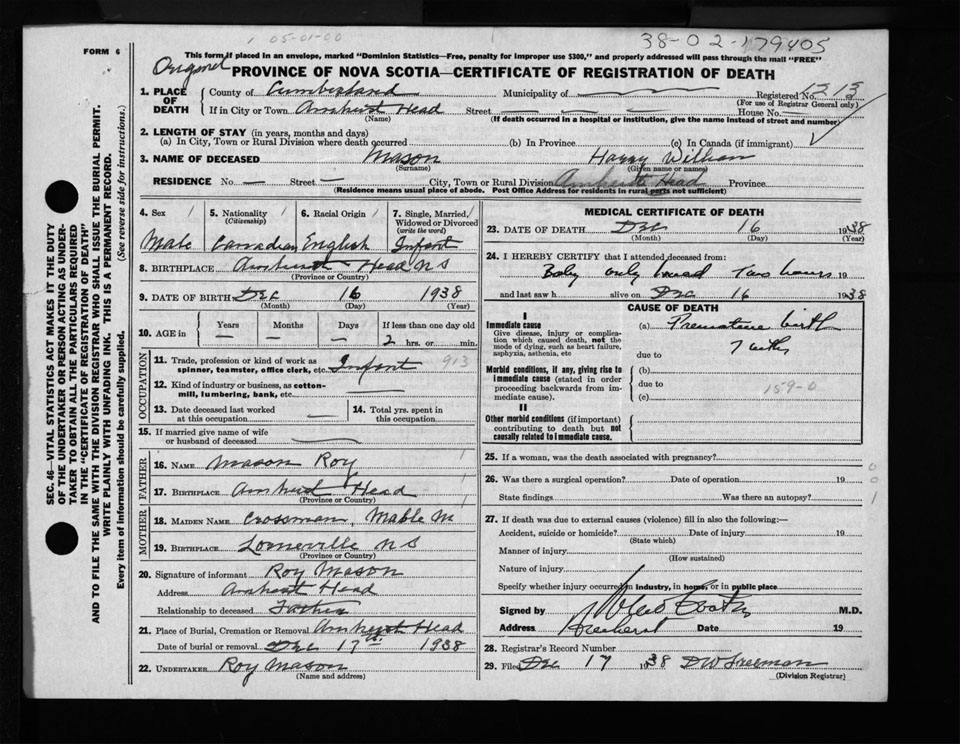 05-01-00
38-02-179405
FORM 6
This form if placed in an envelope, marked "Dominion Statistics—Free, penalty for improper use $300," and properly addressed will pass through the mail "FREE"
Original
PROVINCE OF NOVA SCOTIA—CERTIFICATE OF REGISTRATION OF DEATH
1. PLACE OF DEATH
County of Cumberland Municipality of Registered No. 1213
(For use of Registrar General only)
If in City or Town Amherst Head Street House No.
(Name) (If death occurred in a hospital or institution, give the name instead of street and number)
2. LENGTH OF STAY (in years, months and days)
(a) In City, Town or Rural Division where death occurred (b) In Province (c) In Canada (if immigrant)
3. NAME OF DECEASED Mason Harry William
(Surname) (Given name or names)
RESIDENCE No. — Street — City, Town or Rural Division Amherst Head Province
(Residence means usual place of abode. Post Office Address for residents in rural parts not sufficient)
4. Sex Male
5. Nationality (Citizenship) Canadian
6. Racial Origin English
7. Single, Married, Widowed or Divorced (write the word) Infant
8. BIRTHPLACE Amherst Head N S
(Province or Country)
9. DATE OF BIRTH Dec 16 1938
(Month) (Day) (Year)
10. AGE in Years — Months — Days — If less than one day old
2 hrs. or min.
OCCUPATION
11. Trade, profession or kind of work as spinner, teamster, office clerk, etc. Infant 913
12. Kind of industry or business, as cotton-mill, lumbering, bank, etc. —
13. Date deceased last worked at this occupation —
14. Total yrs. spent in this occupation
15. If married give name of wife or husband of deceased
FATHER
16. NAME Mason Roy
17. BIRTHPLACE Amherst Head
(Province or Country)
MOTHER
18. MAIDEN NAME Crossman, Mable M
19. BIRTHPLACE Lorneville N S
(Province or Country)
20. Signature of informant Roy Mason
Address Amherst Head
Relationship to deceased Father
21. Place of Burial, Cremation or Removal Amherst Head
Date of burial or removal Dec 17th 1938
22. UNDERTAKER Roy Mason
(Name and address)
MEDICAL CERTIFICATE OF DEATH
23. DATE OF DEATH Dec 16 1938
(Month) (Day) (Year)
24. I HEREBY CERTIFY that I attended deceased from:
Baby only lived Two hours 19
and last saw h alive on Dec 16 1938
CAUSE OF DEATH
I
Immediate cause
Give disease, injury or complication which caused death, not the mode of dying, such as heart failure, asphyxia, asthenia, etc
(a) Premature birth
7 mths
due to
Morbid conditions, if any, giving rise to immediate cause (stated in order proceeding backwards from immediate cause).
(b)
due to
159-0
(c)
II
Other morbid conditions (if important) contributing to death but not causally related to immediate cause.
25. If a woman, was the death associated with pregnancy?
26. Was there a surgical operation? Date of operation 19
State findings Was there an autopsy?
0
0
1
27. If death was due to external causes (violence) fill in also the following:—
Accident, suicide or homicide? Date of injury 19
(State which)
Manner of injury
(How sustained)
Nature of injury
Specify whether injury occurred in industry, in home, or in public place
Signed by M.D.
Address Amherst Date 19
28. Registrar's Record Number
29. Filed Dec 17 1938 D W Freeman
(Division Registrar)
SEC. 46—VITAL STATISTICS ACT MAKES IT THE DUTY
OF THE UNDERTAKER OR PERSON ACTING AS UNDER-
TAKER TO OBTAIN ALL THE PARTICULARS REQUIRED
IN THE "CERTIFICATE OF REGISTRATION OF DEATH"
AND TO FILE THE SAME WITH THE DIVISION REGISTRAR WHO SHALL ISSUE THE BURIAL PERMIT.
WRITE PLAINLY WITH UNFADING INK. THIS IS A PERMANENT RECORD.
Every item of information should be carefully supplied. (See reverse side for instructions.)